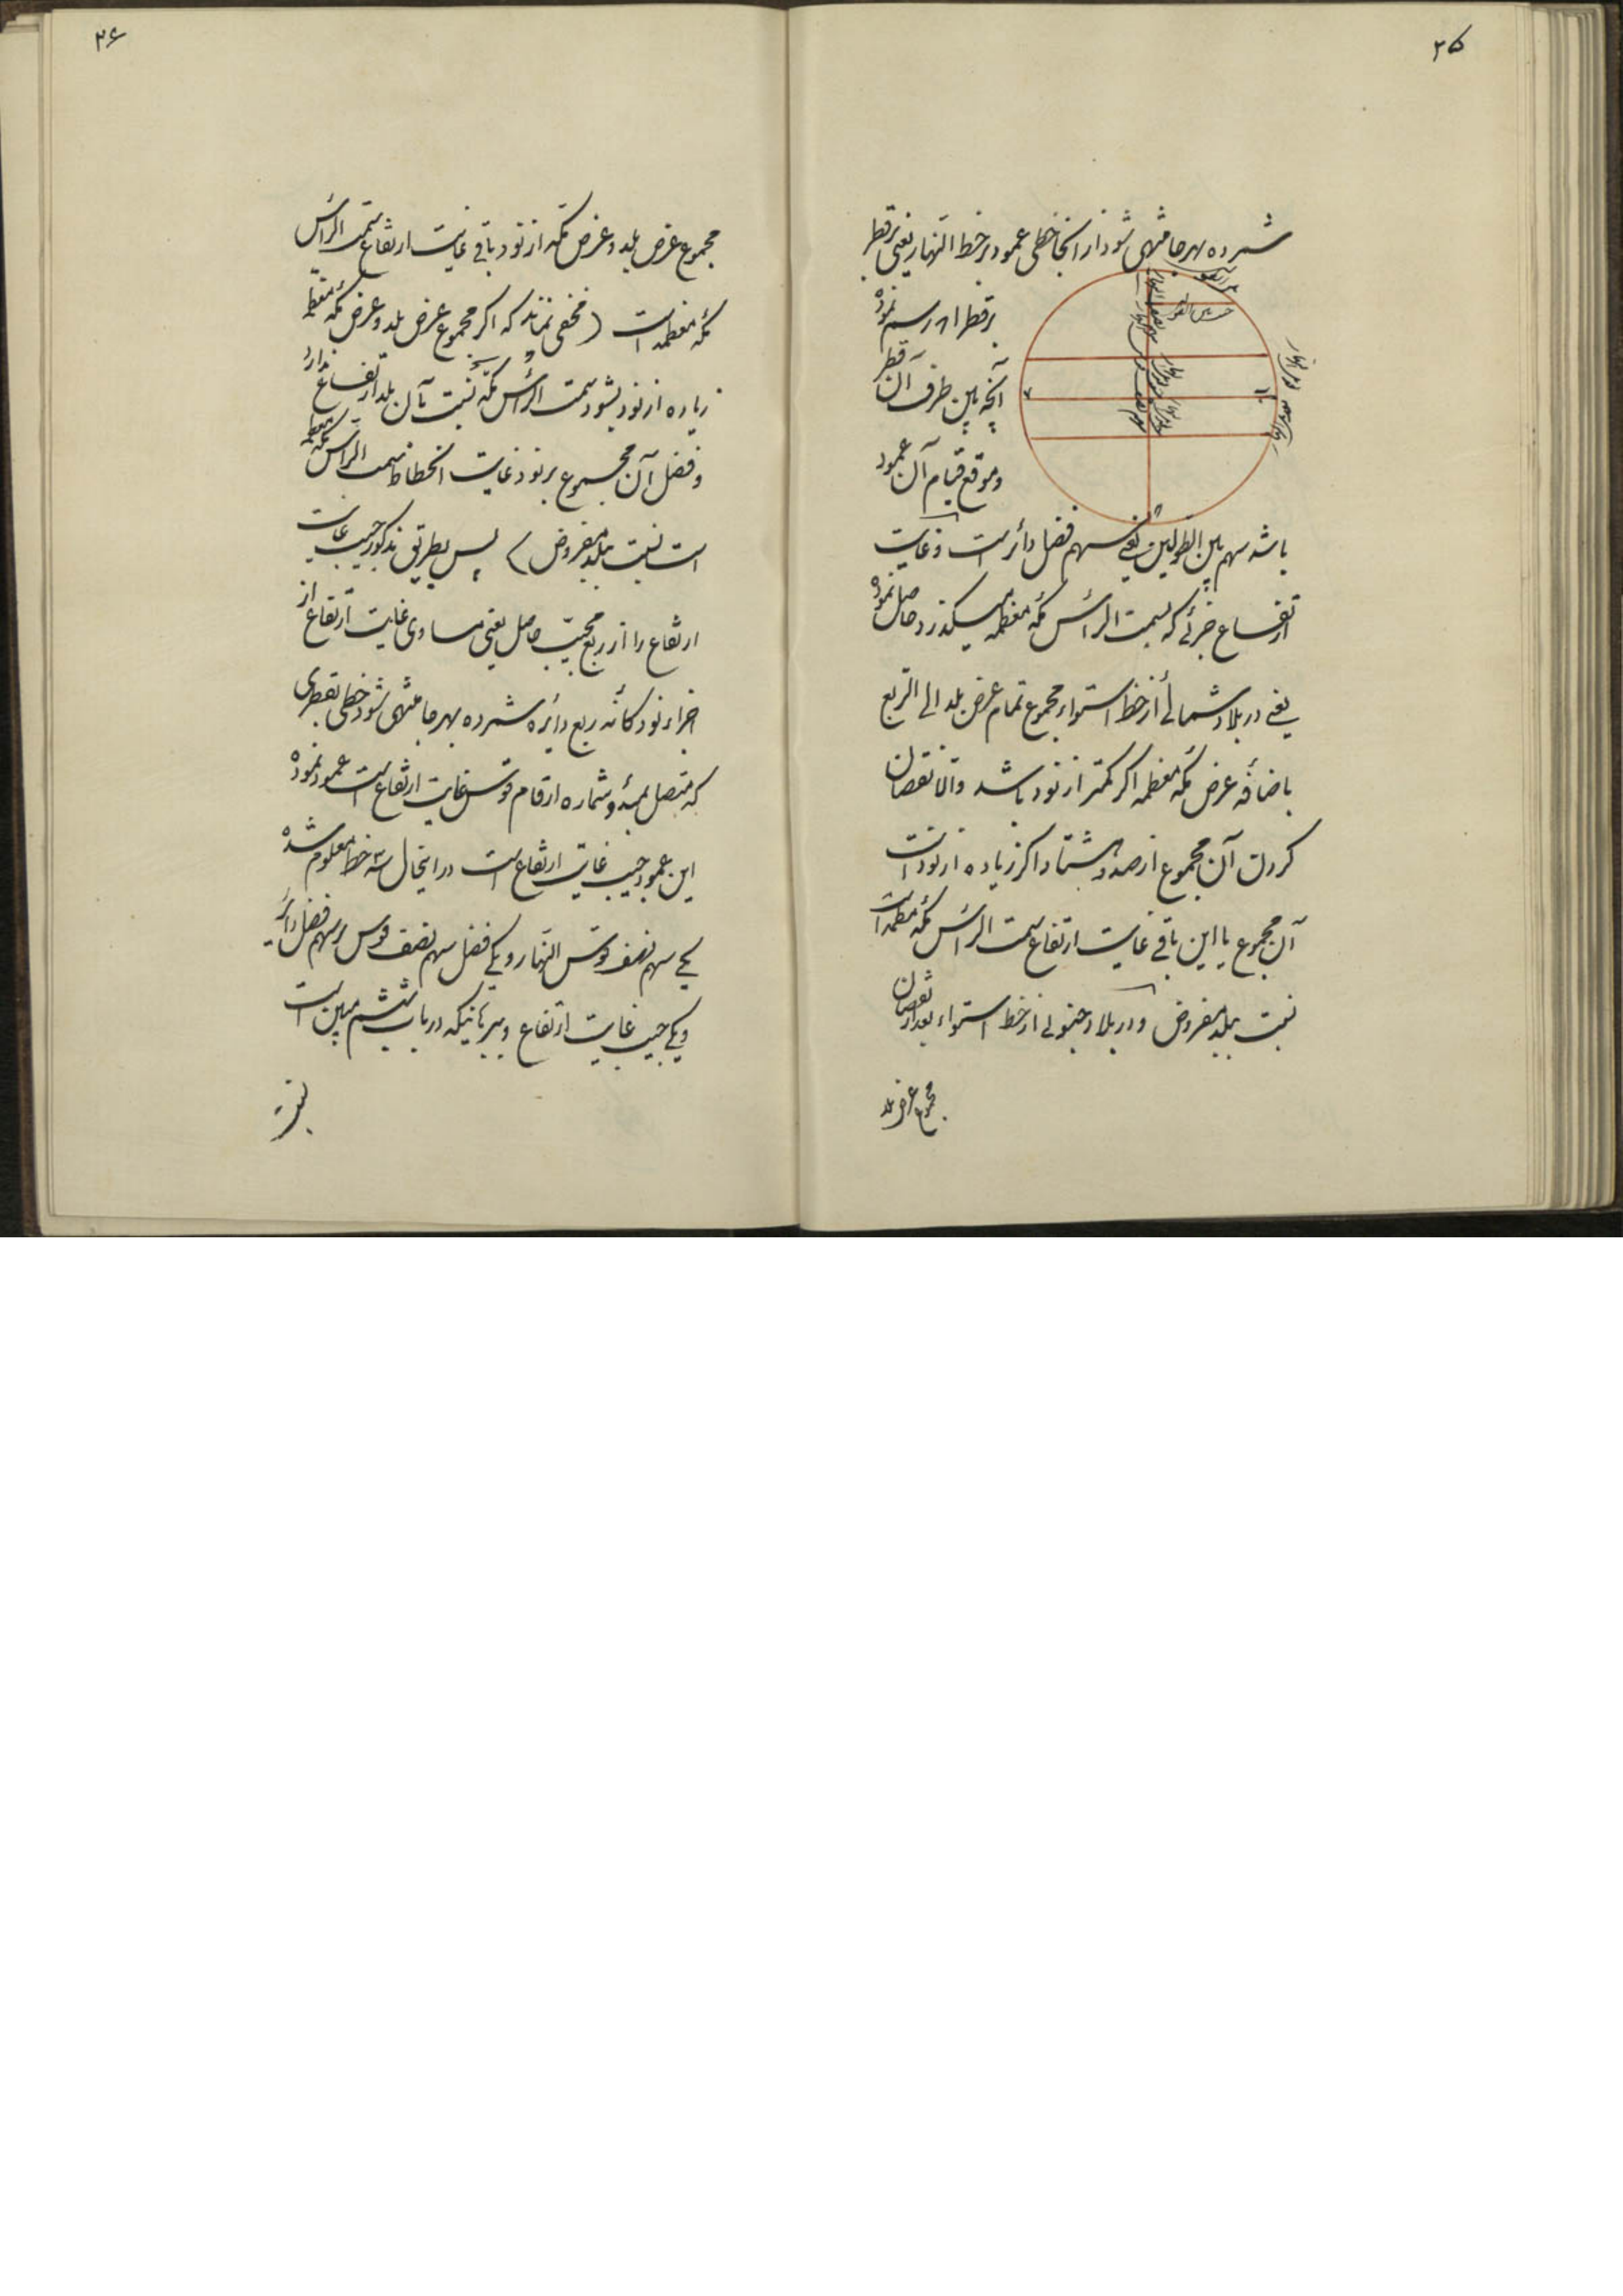 ۲۵
شمرده بهر جا منتهی شود از آنجا خطی عمود بر خط النهار یعنی بر قطر
بر قطر ا ه رسم نموده
آنچه بین طرف آن قطر
و موقع قیام آن عمود
باشد سهم بین الطولین یعنی سهم فضل دائر است و غایت
ارتفاع جزئی که بسمت الرأس مکه معظمه میگذرد حاصل نموده
یعنی در بلاد شمالی از خط استواء مجموع تمام عرض بلد الی الربع
باضافه عرض مکه معظمه اگر کمتر از نود باشد والا نقصان
کردن آن مجموع از صد و هشتاد اگر زیاده از نود است
آن مجموع یا این باقی غایت ارتفاع سمت الرأس مکه معظمه است
نسبت ببلد مفروض و در بلاد جنوبی از خط استواء بعد از نقصان
مجموع عرض بلد
۲۶
مجموع عرض بلد و عرض مکه از نود باقی غایت ارتفاع سمت الرأس
مکه معظمه است (مخفی نماند که اگر مجموع عرض بلد و عرض مکه معظمه
زیاده از نود بشود سمت الرأس مکه نسبت بآن بلد ارتفاع ندارد
و فضل آن مجموع بر نود غایت انحطاط سمت الرأس مکه معظمه
است نسبت ببلد مفروض) پس بطریق مذکور جیب غایت
ارتفاع را از ربع مجیب حاصل یعنی مساوی غایت ارتفاع از
اجزاء نود گانه ربع دائره شمرده بهر جا منتهی شود خطی بقطری
که متصل بمبدأ و شماره ارقام قوس غایت ارتفاع است عمود نموده
این عمود جیب غایت ارتفاع است در اینحال سه خط معلوم شده
یکی سهم نصف قوس النهار و یکی فضل سهم نصف قوس بر سهم فضل دائر
و یکی جیب غایت ارتفاع و ببرهانیکه در باب ششم مبین است
نسبت